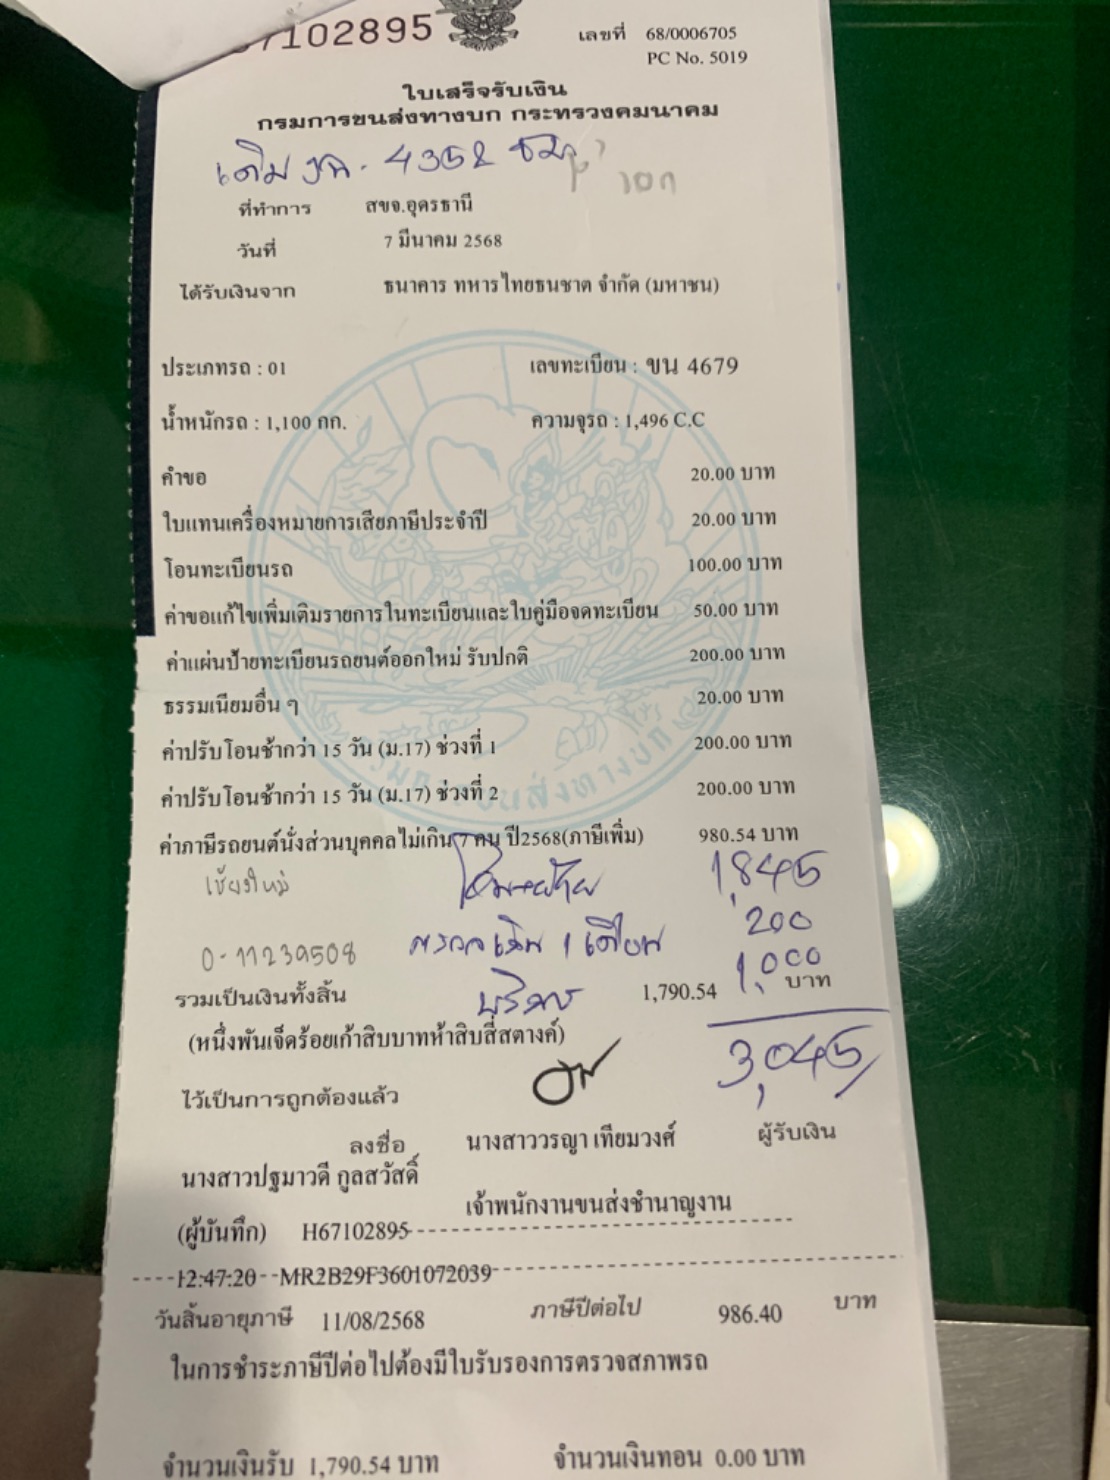 7102895
เลขที่ 68/0006705
PC No. 5019
ใบเสร็จรับเงิน
กรมการขนส่งทางบก กระทรวงคมนาคม
เดิม 4358
ที่ทำการ สขจ.อุดรธานี
วันที่ 7 มีนาคม 2568
ได้รับเงินจาก ธนาคาร ทหารไทยธนชาต จำกัด (มหาชน)
ประเภทรถ : 01 เลขทะเบียน : ขน 4679
น้ำหนักรถ : 1,100 กก. ความจุรถ : 1,496 C.C
คำขอ 20.00 บาท
ใบแทนเครื่องหมายการเสียภาษีประจำปี 20.00 บาท
โอนทะเบียนรถ 100.00 บาท
ค่าขอแก้ไขเพิ่มเติมรายการในทะเบียนและใบคู่มือจดทะเบียน 50.00 บาท
ค่าแผ่นป้ายทะเบียนรถยนต์ออกใหม่ รับปกติ 200.00 บาท
ธรรมเนียมอื่น ๆ 20.00 บาท
ค่าปรับโอนช้ากว่า 15 วัน (ม.17) ช่วงที่ 1 200.00 บาท
ค่าปรับโอนช้ากว่า 15 วัน (ม.17) ช่วงที่ 2 200.00 บาท
ค่าภาษีรถยนต์นั่งส่วนบุคคลไม่เกิน 7 คน ปี2568(ภาษีเพิ่ม) 980.54 บาท
เชียงใหม่ 1,845
1 เดือน 200
0-11239508
บริการ 1,000
รวมเป็นเงินทั้งสิ้น 1,790.54 บาท
(หนึ่งพันเจ็ดร้อยเก้าสิบบาทห้าสิบสี่สตางค์)
3,045
ไว้เป็นการถูกต้องแล้ว
ลงชื่อ นางสาววรญา เทียมวงศ์ ผู้รับเงิน
นางสาวปฐมาวดี กูลสวัสดิ์
เจ้าพนักงานขนส่งชำนาญงาน
(ผู้บันทึก) H67102895
12:47:20 MR2B29F3601072039
วันสิ้นอายุภาษี 11/08/2568 ภาษีปีต่อไป 986.40 บาท
ในการชำระภาษีปีต่อไปต้องมีใบรับรองการตรวจสภาพรถ
จำนวนเงินรับ 1,790.54 บาท จำนวนเงินทอน 0.00 บาท